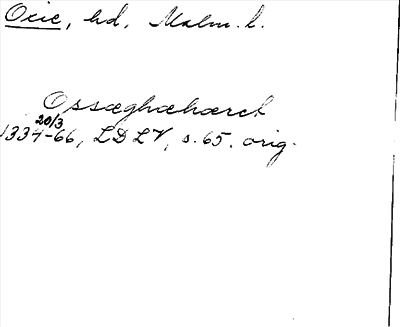 Oxie, hd, Malm. l.
Ossæghæhæret
20/3
1334-66, LDLV, s. 65. orig.